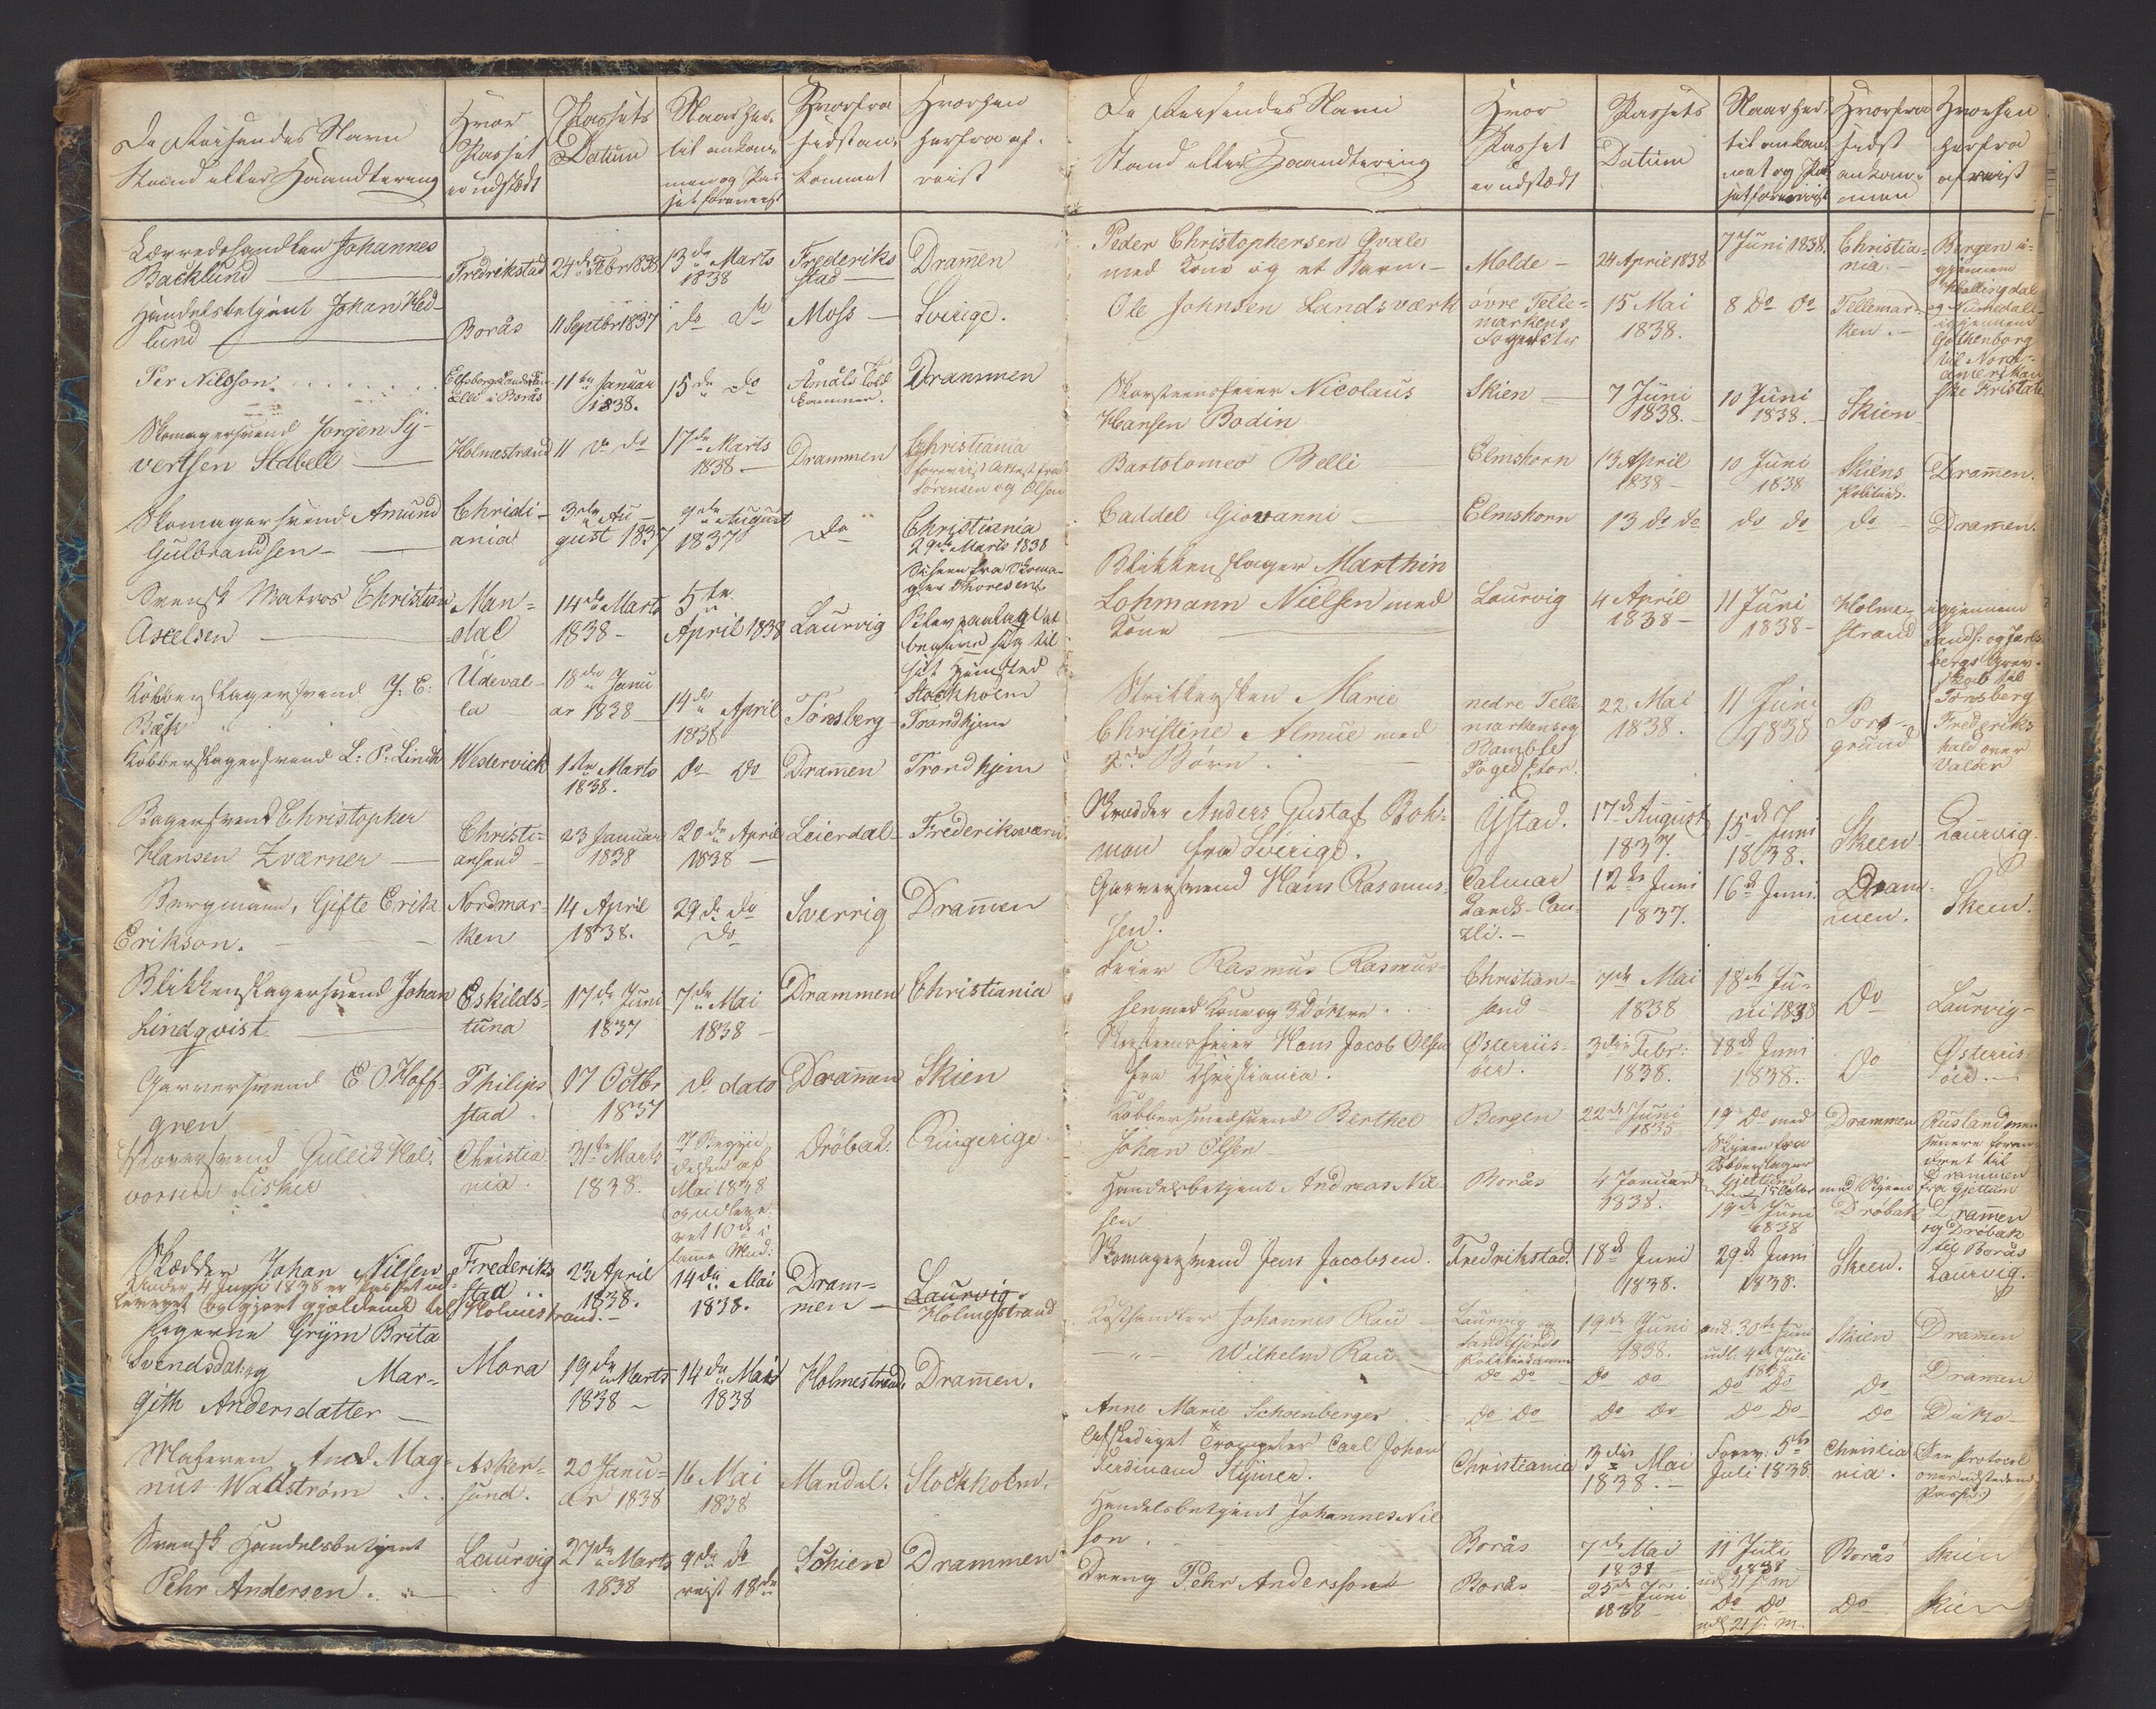 De Reisendes Navn
Stand eller Haandtering
Hvor
Passet
er udstædt
Passets
Datum
Naar her-
til ankom-
men og Pas-
set foreviist
Hvorfra
sidst an-
kommet
Hvorhen
herfra af-
reist
Lærredshandler Johannes
Bäcklund
Fredrikstad
24de Febr 1838
13de Marts
1838
Frederiks
stad
Dramen
Handelsbetjent Johan Hed-
lund
Borås
11 Septbr 1837
do do
Moss
Sverige.
Per Nilsson
Elfsborgs
i Borås
11te Januar
1838.
15de do
Åmåls Told
kammer.
Drammen
Skomagersvend Jørgen Sy-
vertsen Stabell
Holmestrand
11 do do
17de Marts
1838
Drammen
Christiania
foreviist Attest fra
Sørensen og Olsen
Skomagersvend Amund
Gulbrandsen
Christi-
ania
3die Au-
gust 1837
9de August
1837
do
Christiania
29de Marts 1838
Svensk Matros Christian
Axelsen
Man-
dal
14de Marts
1838
5te
April 1838
Laurvig
Blev paalagt at
begive sig til
sit Hjemsted
Kobberslagersvend J. E.
Udeval-
la
18de Janu
ar 1838
14de April
1838
Tønsberg
Stockholm
Trondhjem
Kobberslagersvend L. P. Lindh
Westervick
1ste Marts
1838.
do do
Dramen
Trondhjem
Bagersvend Christopher
Hansen Zwærner
Christi-
ansand
23 Januar
1838
20de April
1838
Leierdal
Frederiksværn
Bergmann, Gifte Erik
Erikson.
Nordmar-
ken
14 April
1838.
29de do
do
Sverrig
Dramen
Blikkenslagersvend Johan
Lindqvist
Eskilds-
tuna
17de Juni
1837
7de Mai
1838
Drammen
Christiania
Garversvend E. O Hoff-
gren
Philips
stad
17 Octbr
1837
do dato
Dramen
Skien
Farversvend Gullik Hal-
vorsen Fiskee
Christia
nia.
31te Marts
1838.
I Begyn-
delsen af
Mai 1838
og udleve-
ret 10de i
samme Mnd:
Drøbak.
Ringerige.
Skrædder Johan Nilsen
Under 4 Juni 1838 er Passet ud-
leveret og gjort gjældende til Holmestrand.
Frederiks
stad
23 April
1838.
14de Mai
1838.
Dram-
men
Laurvig.
Holmestrand
Pigerne Grym Brita
Svendsdat: og Mar-
gith Andersdatter
Mora
19de Marts
1838
14de Mai
1838
Holmestrand.
Dramen.
And Mag-
nus Wadström
Asker-
sund.
20 Janu-
ar 1838
16 Mai
1838
Mandal.
Stockholm.
Svensk Handelsbetjent
Pehr Andersen.
Laurvig
27de Marts
1838
9de do
reist 18de
Schien
Drammen
De Reisendes Navn
Stand eller Haandtering
Hvor
Passet
er udstædt
Passets
Datum
Naar her-
til ankom-
met og Pas-
set foreviist
Hvorfra
sidst
ankom-
men
Hvorhen
herfra
afreist
Peder Christophersen Qvale
med Kone og et Barn.
Molde
24 April 1838
7 Juni 1838.
Christia-
nia.
Bergen i-
gjennem
Hallingdal
og Numedal
Ole Johnsen Landsværk
øvre Telle-
markens
Fogderie
15 Mai
1838.
8 do do
Tellemar-
ken.
igjennem
Gothenborg
til Nord-
amerikan
ske Fristater
Skorsteensfeier Nicolaus
Hansen Bodin
Skien
7 Juni
1838.
10 Juni
1838.
Skien
Bartolomeo Belli
Elmshorn
13 April
1838
10 Juni
1838
Skiens
Politied.
Dramen.
Caddel Giovanni
Elmshorn
13 do do
do do
do
Dramen.
Blikkenslager Marthin
Lohmann Nielsen med
Kone
Laurvig
4 April
1838
11 Juni
1838
Holme-
strand
igjennem
Lands: og Jarls
bergs Grev-
skab til
Tønsberg
Marie
Christine Almue med
2de Børn.
nedre Telle
markens og
Bamble
Fogderier.
22 Mai
1838.
11 Juni
1838
Pors-
grund
Frederiks
hald over
Valøer
Skrædder Anders Gustaf Bok-
man fra Sverige.
Ystad.
17de August
1837.
15de Juni
1838.
Skeen
Laurvig.
Garversvend Hans Rasmus-
sen.
Calmar
Lands-Can-
zli.
12te Juni
1837.
16de Juni.
Dram-
men.
Skeen.
Feier Rasmus Rasmus-
sen med Kone og 3 Døttre.
Christian-
sand
7de Mai
1838
18de Ju-
ni 1838
do
Laurvig
Skorsteensfeier Hans Jacob Olsen
fra Christiania.
Østeriis-
øer.
3die Febr:
1838.
18de Juni
1838.
do
Østeriis
øer.
Kobbersmedsvend Berthel
Johan Olsen
Bergen
22de Juni
1835
19 do med
Skjøen fra
Kobberslager
Gjettum
Drammen
Rusland men
senere foran-
dret til
Drammen
Handelsbetjent Andreas Nil-
sen
Borås
4 Januari
1838.
19de Juni
1838
Drøbak
Dramen
og Drøbak
til Borås
Skomagersvend Jens Jacobsen.
Fredrikstad.
18de Juni
1838.
29de Juni
1838.
Skeen.
Laurvig.
Johannes Rau
Laurvig og
Sandefjords
Politiekammer
19de Juni
1838.
ank. 30te Juni
udl. 4de Juli
1838
Skien
Dramen
Wilhelm Rau
do do
do do
do do
do
Dramen
Anne Marie Schoenberger
do do
do do
do do
do
Ditto
Afskediget Trompeter Carl Johan
Ferdinand Stymer.
Christiania
3die Mai
1838.
Forev: 5te
Juli 1838.
Christia
nia.
(See Protocol
over udstedede
Passer)
Handelsbetjent Johannes Nil
son.
Borås
7de Mai
1838
11 Juli
1838
udl 21 s. m
Borås
Skien
Dreng Pehr Andersson
Borås
25de Juni
1838
do do
udl 21 s. m.
do
Skien